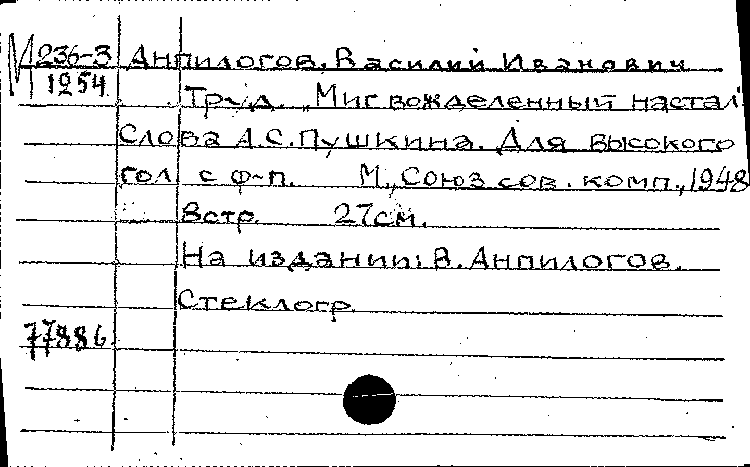 М 236-3 Анпилогов, Василий Иванович
1254 Труд. Миг вожделенный настал
Слова А.С. Пушкина. Для высокого
гол с ф-п. М., Союз сов. комп., 1948
8стр. 27см.
На издании: В. Анпилогов.
Стеклогр.
77886.